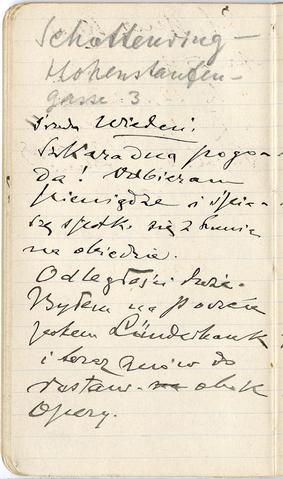 Schottenring –
Hohenstaufen-
gasse 3.
Środa Wiedeń.
Szkaradna pogo-
da! Odbieram
pieniądze i śpie-
szę spotk. się z
na obiedzie.
Odległości duże.
Byłem na
jestem Länderbank
i teraz znów do
restaur. obok
Opery.